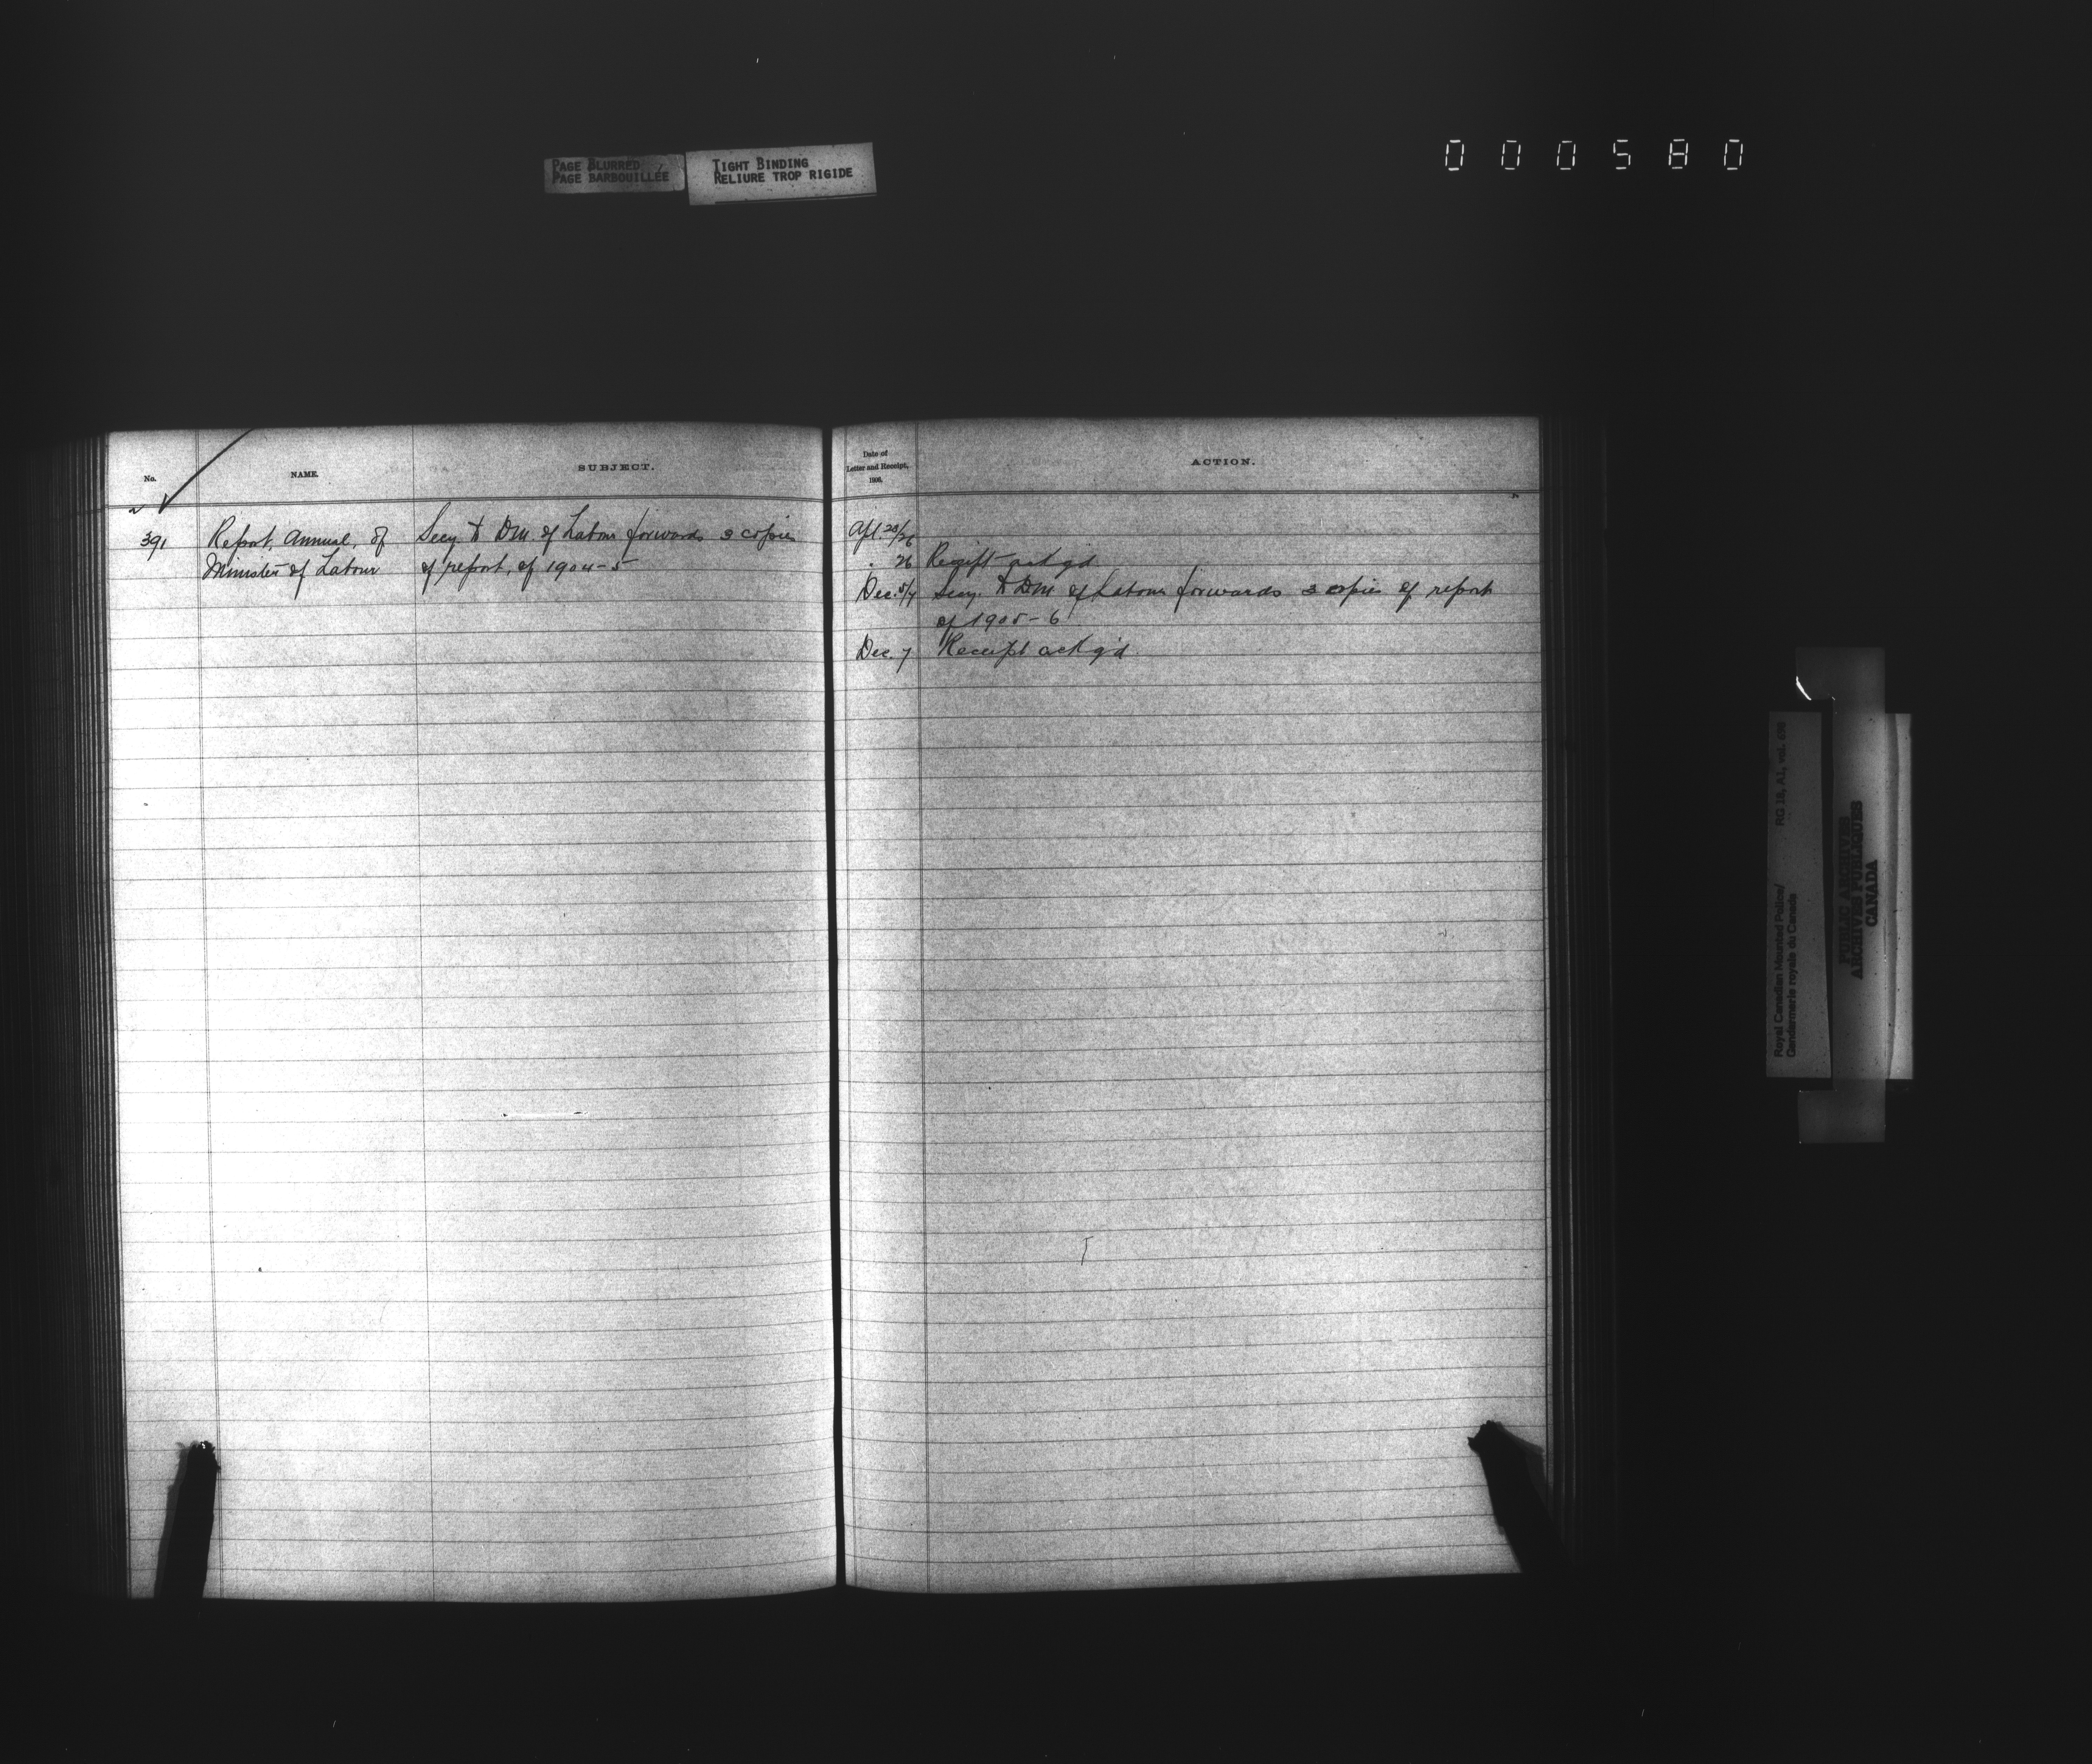 PAGE BLURRED
PAGE BARBOUILLÉE
TIGHT BINDING
RELIURE TROP RIGIDE
000580
No.
NAME.
SUBJECT.
Date of
Letter and Receipt,
1906.
ACTION.
391
Report, Annual, of
Minister of Labour
Secy. to DM. of Labour forwards 3 copies
of report, of 1904-5
Apl. 23/26
. 26 Receipt ackg'd
Dec. 5/7 Secy. to DM of Labour forwards 3 copies of report
of 1905-6
Dec. 7 Receipt ackg'd.
Royal Canadian Mounted Police/
Gendarmerie royale du Canada
RG 18, A1, vol.
PUBLIC ARCHIVES
ARCHIVES PUBLIQUES
CANADA